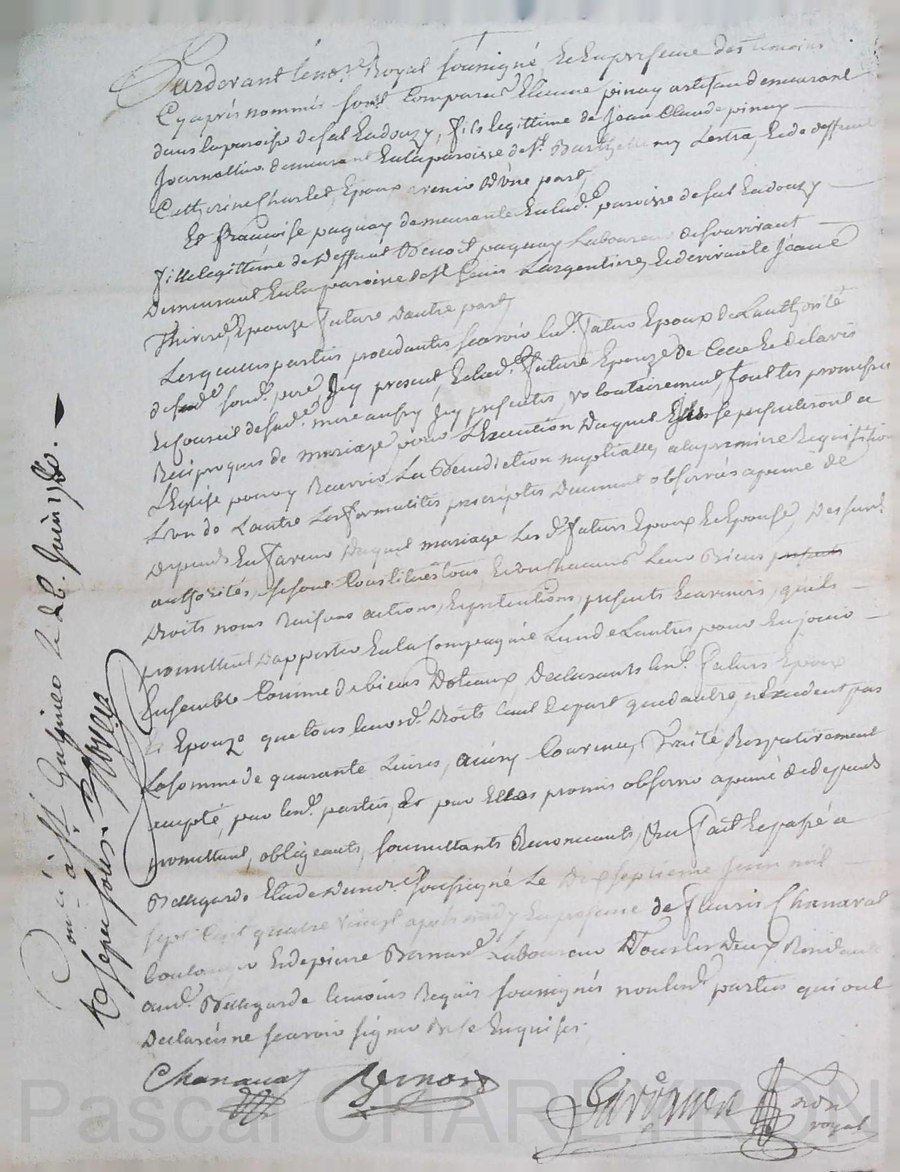 Pardevant le nore Royal soussigné Et En presence des temoins
Cy apres nommés sont Comparus Etienne pinay artisan demeurant
dans la paroisse de salt En douzy, fils legittime de Jean Claude pinay
Journallier demeurant En la paroisse de St. Barthelemy Lestra, Et de deffunte
Catherine Charlet, Epoux avenir D'une part,
Et françoise paquay demeurante En lad.e paroisse de salt En douzy
fille legittime de Deffunt Benoit paquay Laboureur de son vivant
Demeurant En la paroisse de St Cirice Largentiere, Et de vivante Jeanne
Epouze future D'autre part,
Lesquelles parties procedantes scavoir led. futur Epoux de L'authorité
de sond. pere, Icy present, Et lad. future Epouze De Celle Et de L'avis
Et conseil de sad. mere aussy Icy presente, volontairement, font les promesses
Reciproques de mariage pour L'Execution Duquel Ils se presenteront a
L'Eglise pour y Recevoir La Benediction nuptialle, a la premiere Requisition
L'un de L'autre Les formalités prescriptes Duement observées a peine de
depends En faveur Duquel mariage Les d. futurs Epoux Et Epouse, De sus d.
authorités, se sont Constitués tous, Et un chacuns Leurs Biens
Droits noms Raisons actions, Et pretentions, presents Et avenirs, quils
promettent D'apporter En la Compagnie L'un de L'autre pour En jouir
Ensemble Comme de biens Dotaux, Declarants lesd. futurs Epoux
Et Epouze que tous leursd. Droits tant de part que d'autre, n'Excedent pas
La somme de quarante Livres, ainsy Convenu, Traité, Respectivement
accepté, par lesd. parties, Et par Elles promis observer a peine de depends
promettant, obligeants, soumettants Renonçants, &c fait Et passé a
Bellegarde Etude du nore soussigné Le Dix septieme Juin mil
sept Cent quatre vingt apres midy En presence de fleuris Chanavat
boulanger Et de pierre Bernard Laboureur Tous les Deux Residants
aud. Bellegarde temoins Requis soussignés non lesd. parties qui ont
Declaré ne scavoir signer De ce Enquises.
Chanavat
Bernard
nore royal
Con.lé à St Galmier le 26. Juin 1780.
Pascal CHAREYRON